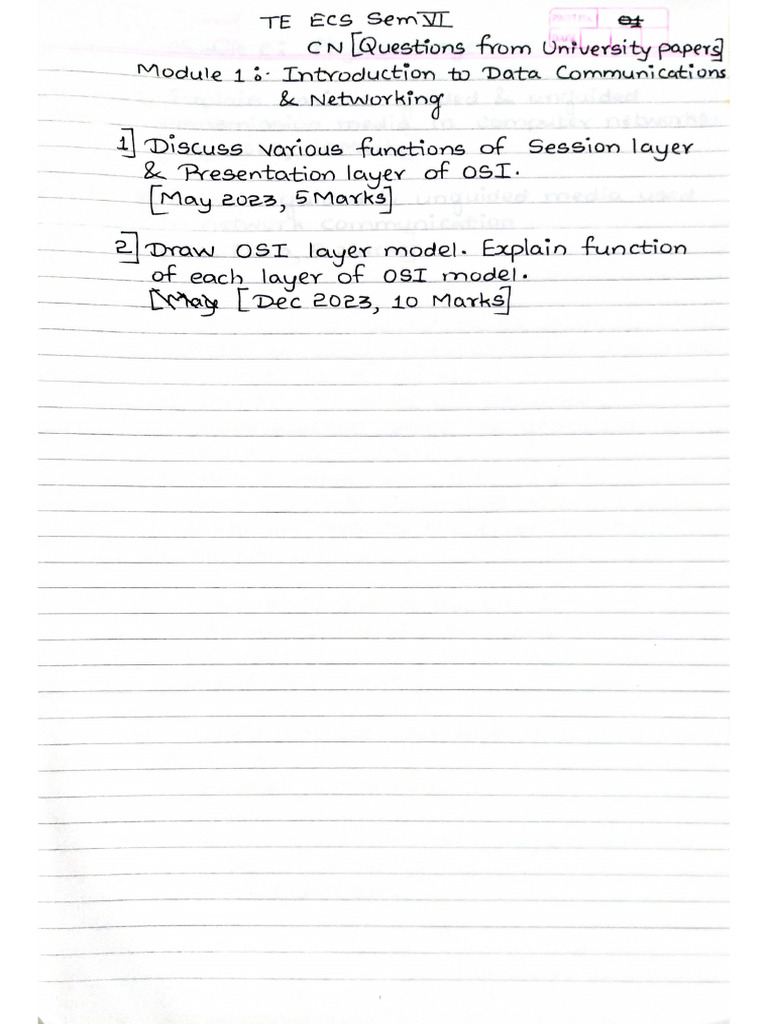 TE ECS Sem VI
01
CN [Questions from University papers]
Module 1 :- Introduction to Data Communications
& Networking
1] Discuss various functions of Session layer
& Presentation layer of OSI.
[May 2023, 5 Marks]
2] Draw OSI layer model. Explain function
of each layer of OSI model.
[May [Dec 2023, 10 Marks]